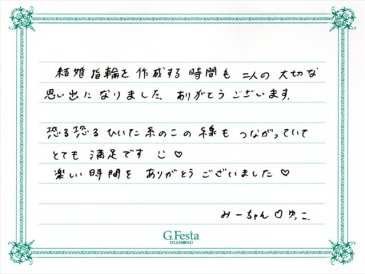 結婚指輪を作成する時間も二人の大切な
思い出になりました。ありがとうございます。
恐る恐るひいた糸のこの線もつながっていて
とても満足です ♡
楽しい時間をありがとうございました♡
みーちゃん♡ゆっこ
G.Festa
DIAMOND